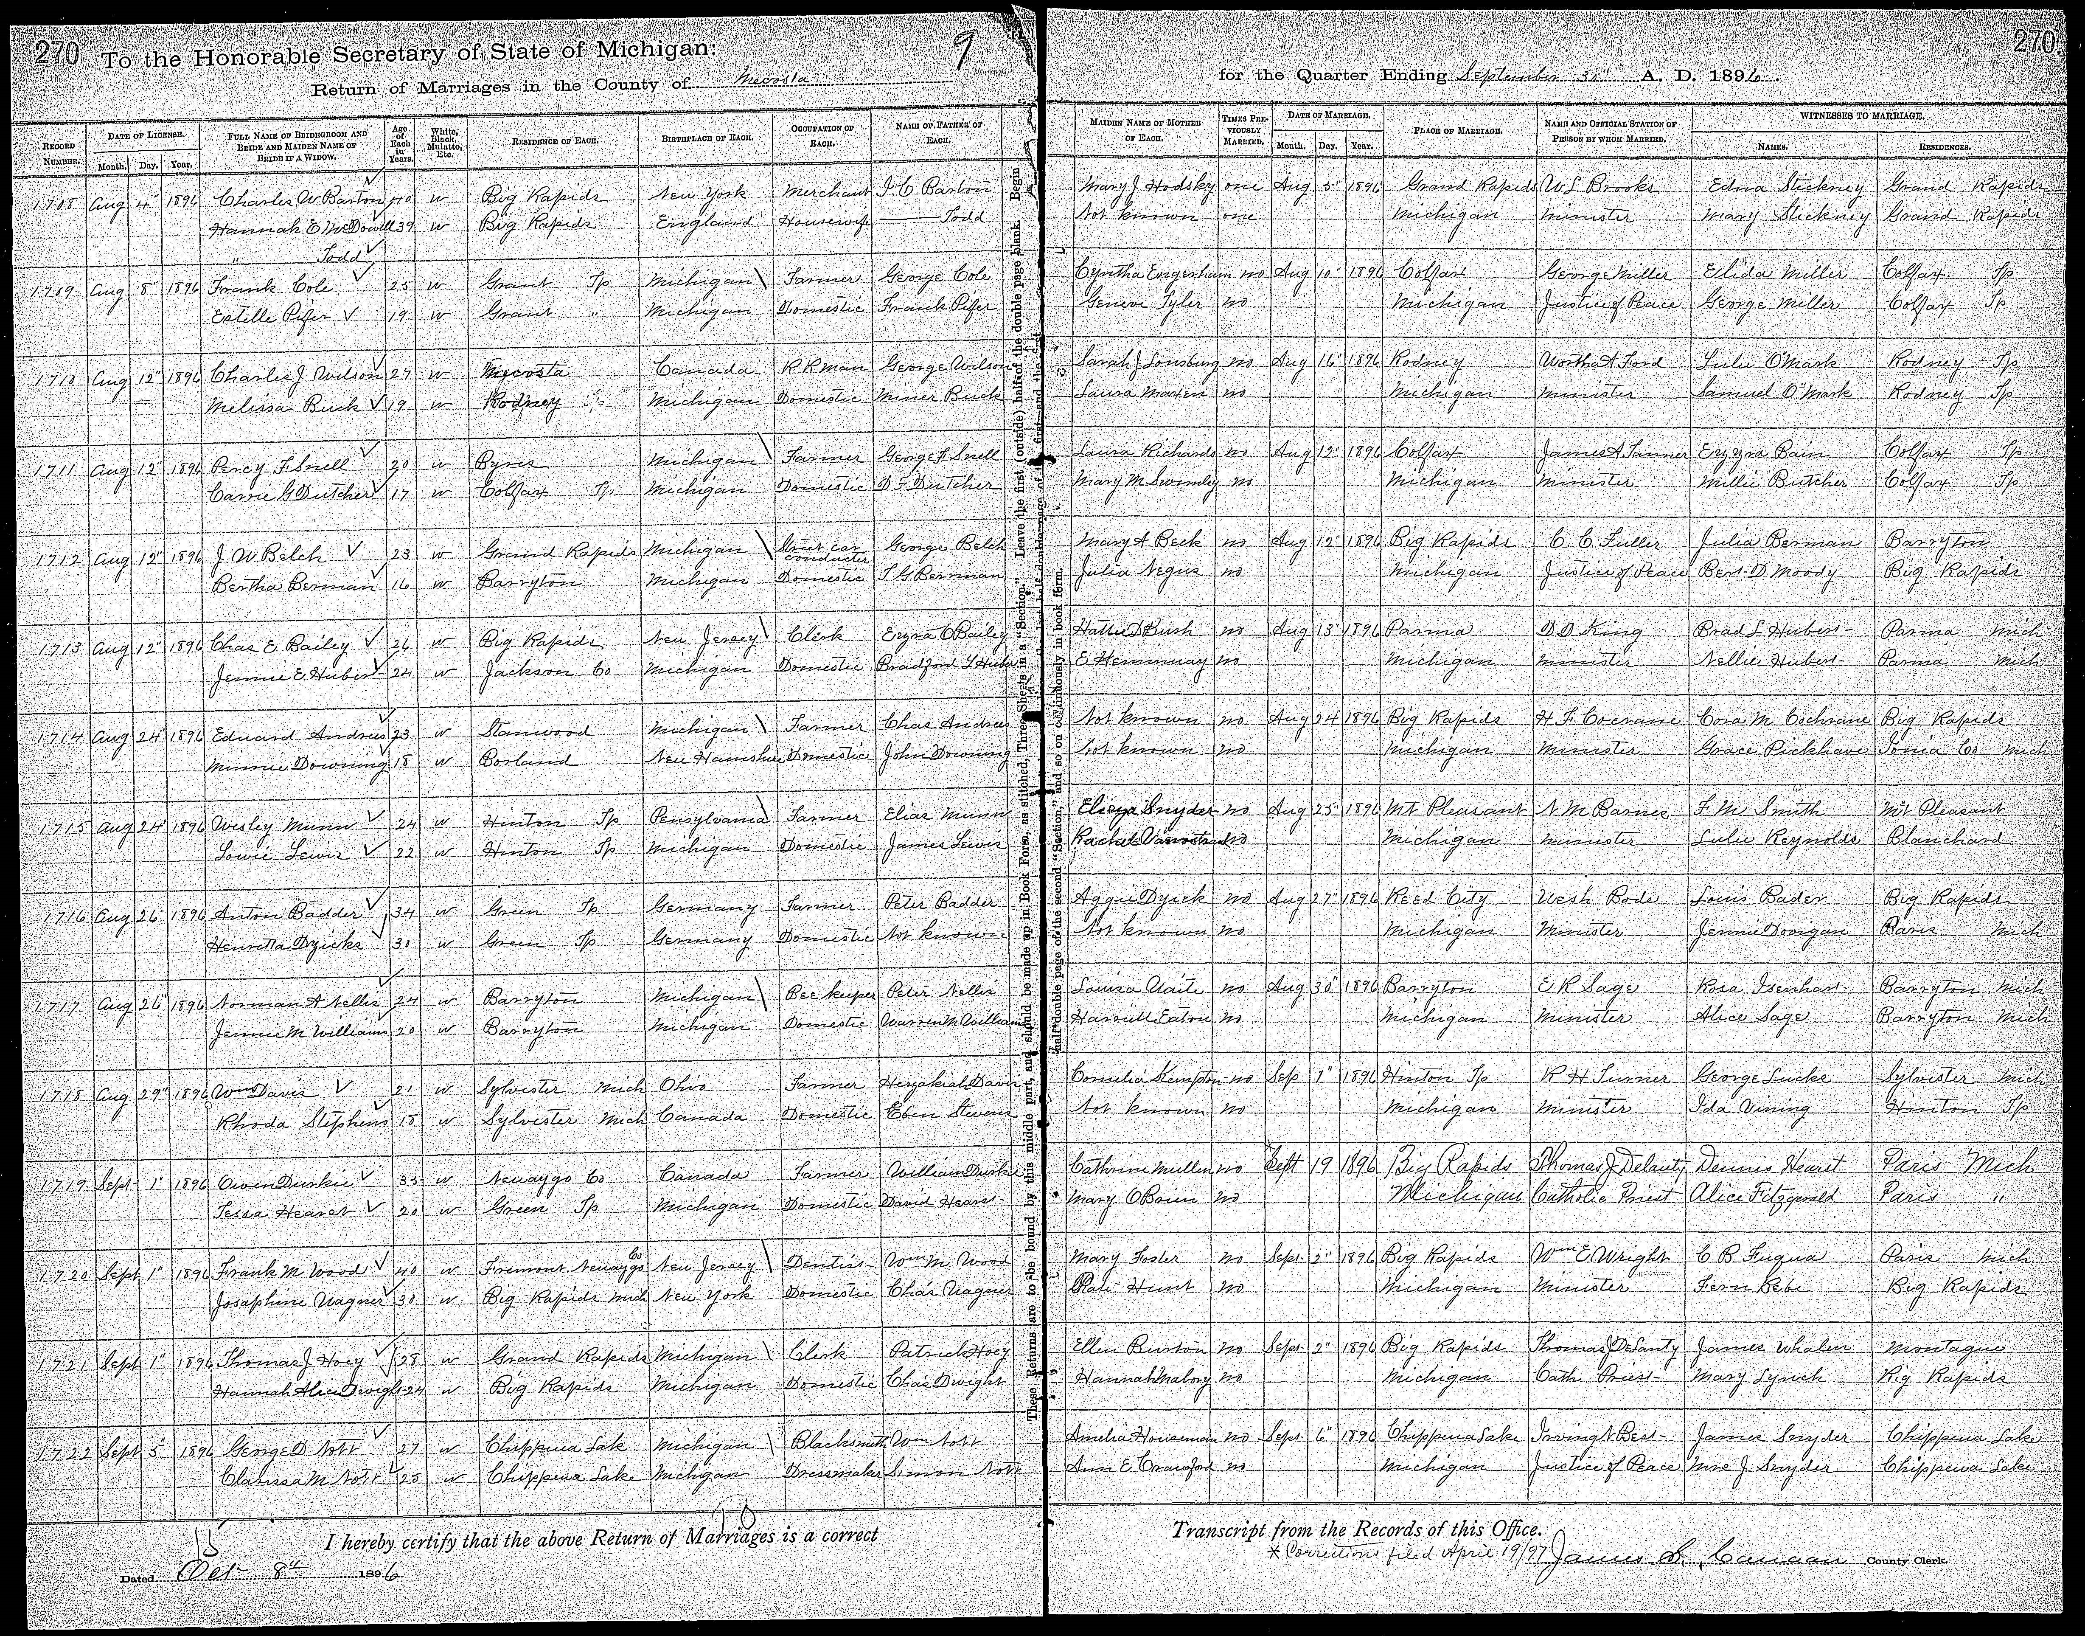 270 To the Honorable Secretary of State of Michigan: 9
Return of Marriages in the County of Mecosta
RECORD NUMBER. DATE OF LICENSE. Month. Day. Year. FULL NAME OF BRIDEGROOM AND BRIDE AND MAIDEN NAME OF BRIDE IF A WIDOW. Age of Each in Years. White, Black, Mulatto, Etc. RESIDENCE OF EACH. BIRTHPLACE OF EACH. OCCUPATION OF EACH. NAME OF FATHER OF EACH.
1708 Aug 4" 1896 Charles W Barton 40 w Big Rapids New York Merchant J. C Barton
Hannah E McDowell 39 w Big Rapids England Housewife Todd
" Todd
1709 Aug 8" 1896 Frank Cole 25 w Grant Tp Michigan Farmer George Cole
Estelle Pifer 19 w Grant " Michigan Domestic Frank Pifer
1710 Aug 12" 1896 Charles J Wilson 27 w Mecosta Canada R R man George Wilson
Melissa Buck 19 w Rodney Michigan Domestic Miner Buck
1711 Aug 12" 1896 Percy F. Snell 20 w Byres Michigan Farmer George F Snell
Carrie G Dutcher 17 w Colfax Tp Michigan Domestic D F Dutcher
1712 Aug 12" 1896 J W Belch 23 w Grand Rapids Michigan Street car conductor George Belch
Bertha Berman 16 w Barryton Michigan Domestic T G Berman
1713 Aug 12" 1896 Chas E. Bailey 26 w Big Rapids New Jersey Clerk Ezyra C Bailey
Jennie E Hubert 24 w Jackson Co Michigan Domestic Bradford L Hubert
1714 Aug 24" 1896 Eduard Andres 23 w Stanwood Michigan Farmer Chas Andres
Minnie Downing 18 w Borland New Hamshire Domestic John Downing
1715 Aug 24" 1896 Wesley Munn 24 w Hinton Tp Pensylvania Farmer Elias Munn
Lowie Lewis 22 w Hinton Tp Michigan Domestic James Lewis
1716 Aug 26" 1896 Anton Badder 34 w Green Tp Germany Farmer Peter Badder
Henrietta Dyicks 30 w Green Tp Germany Domestic Not known
1717 Aug 26" 1896 Norman A Nellis 24 w Barryton Michigan Bee keeper Peter Nellis
Jennie M Williams 20 w Barryton Michigan Domestic Warren M Williams
1718 Aug 29" 1896 Wm Davis 21 w Sylvester Mich Ohio Farmer Hezakiah Davis
Rhoda Stephens 18 w Sylvester Mich Canada Domestic Eben Stevens
1719 Sept 1" 1896 Owen Durkie 35 w Newaygo Co Canada Farmer William Durkie
Tessa Hearet 20 w Green Tp Michigan Domestic David Hearet
1720 Sept 1" 1896 Frank M. Wood 40 w Fremont Newaygo Co New Jersey Dentist Wm M. Wood
Josephine Wagner 30 w Big Rapids Mich New York Domestic Chas Wagner
1721 Sept 1" 1896 Thomas J Hoey 28 w Grand Rapids Michigan Clerk Patrick Hoey
Hannah Alice Dwight 24 w Big Rapids Michigan Domestic Chas Dwight
1722 Sept 5" 1896 George D Nott 27 w Chippewa Lak Michigan Blacksmith Wm Nott
Clarissa M Nott 25 w Chippewa Lake Michigan Dressmaker Simon Nott
10
I hereby certify that the above Return of Marriages is a correct
15
Dated Oct 8th 1896
These Returns are to be bound by this middle part, and should be made up in Book Form, as stitched, Three Sheets in a "Section." Leave the first (outside) half of the double page blank. Begin
half double page of the second "Section," and so on continuously in book form.
for the Quarter Ending September 30" A. D. 1896. 270
MAIDEN NAME OF MOTHER OF EACH. TIMES PREVIOUSLY MARRIED. DATE OF MARRIAGE. Month. Day. Year. PLACE OF MARRIAGE. NAME AND OFFICIAL STATION OF PERSON BY WHOM MARRIED. WITNESSES TO MARRIAGE. NAMES. RESIDENCES.
Mary J. Hodsky one Aug 5" 1896 Grand Rapids W L Brooks Edna Stickney Grand Rapids
Not known one Michigan Minister Mary Stickney Grand Rapids
Cyntha Engersham no Aug 10" 1896 Colfax George Miller Elida Miller Colfax Tp
Geneve Tyler no Michigan Justice of Peace George Miller Colfax Tp
Sarah J Lonsburg no Aug 16" 1896 Rodney Wortha A Ford Lulu O'Mark Rodney Tp
Laura Maxen no Michigan Minister Samuel O'Mark Rodney Tp
Laura Richards no Aug 12" 1896 Colfax James A Tanner Ezyra Bain Colfax Tp
Mary M Swomly no Michigan Minister Millie Butcher Colfax Tp
Mary A Beck no Aug 12" 1896 Big Rapids C C Fuller Julia Berman Barryton
Julia Negus no Michigan Justice of Peace Bert D Moody Big Rapids
Hattie D Bush no Aug 13" 1896 Parma D D King Brad L Hubert Parma Mich
E Hemmway no Michigan Minister Nellie Hubert Parma Mich
Not known no Aug 24 1896 Big Rapids H. F. Cocrane Cora M Cochrane Big Rapids
Not known no Michigan Minister Grace Pickhave Ionia Co Mich
Elizya Snyder no Aug 25" 1896 Mt Pleasant N M Barnes F. M. Smith Mt Pleasant
Rachel no Michigan Minister Lulu Reynolds Blanchard
Aggie Dyick no Aug 27" 1896 Reed City Wesh Bode Louis Bader Big Rapids
Not known no Michigan Minister Jennie Doorgan Paris Mich
Louisa Waite no Aug 30" 1896 Barryton E R Sage Rosa Isenhart Barryton Mich
Harriell Eaton no Michigan Minister Alice Sage Barryton Mich
Cornelia Kempton no Sep 1" 1896 Hinton Tp R H Turner George Lucke Sylvester Mich
Not known no Michigan Minister Ida Vining Hinton Tp
Cathrine Mullen no Sept 19 1896 Big Rapids Thomas J Delanty Dennis Hearet Paris Mich
Mary O Brien no Michigan Catholic Priest Alice Fitzgerald Paris "
Mary Foster no Sept 2" 1896 Big Rapids Wm E Wright C B Fuqua Paris Mich
Kate Hunt no Michigan Minister Fern Bebe Big Rapids
Ellen Burton no Sept 2" 1896 Big Rapids Thomas J DeLanty James Whalen Montague
Hannah Malony no Michigan Cath Priest Mary Lynch Big Rapids
Amelia Houseman no Sept 6" 1896 Chippewa Lake Irving N Best James Snyder Chippewa Lake
Ann E Crawford no Michigan Justice of Peace Mrs J. Snyder Chippewa Lake
Transcript from the Records of this Office.
* Corrections filed April 19/97 James S. Canaan County Clerk